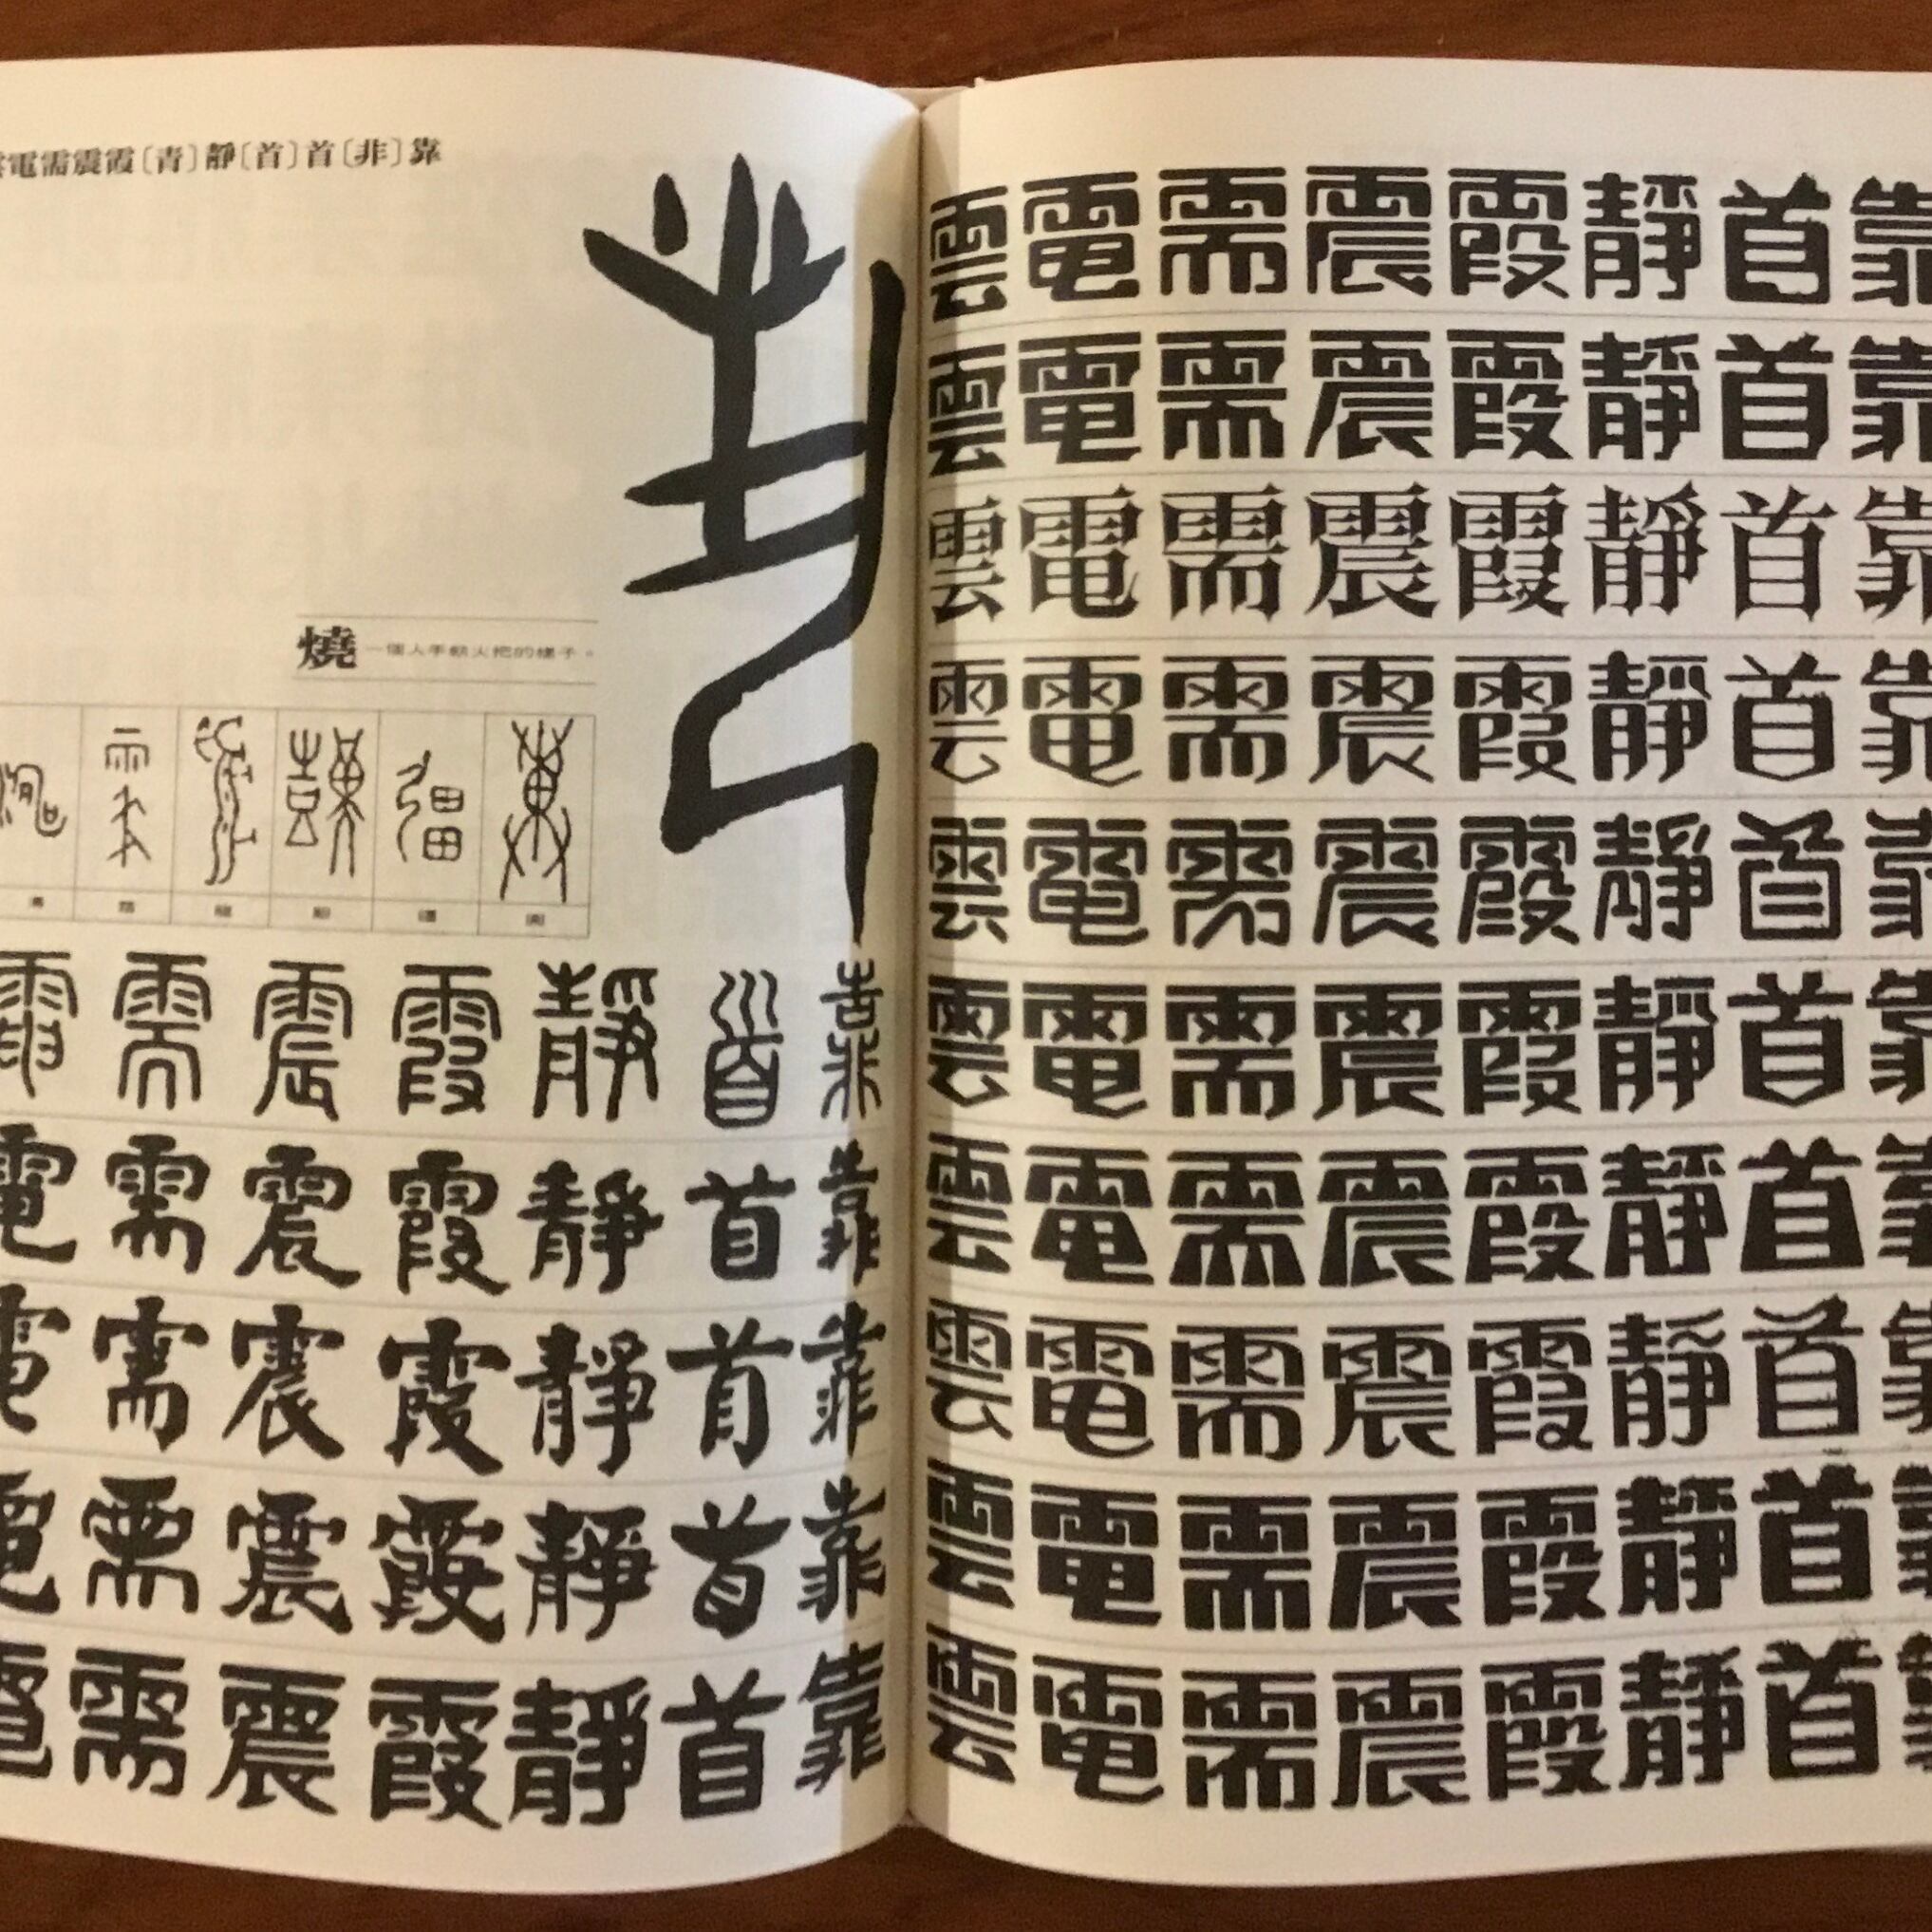 電需震霞〔青〕靜〔首〕首〔非〕靠
燒 一個人手執火把的樣子。
需震霞靜首靠
電需震霞靜首靠
電需震霞靜首靠
電需震霞靜首靠
電需震霞靜首靠
雲電需震霞靜首靠
雲電需震霞靜首靠
雲電需震霞靜首靠
雲電需震霞靜首靠
雲電需震霞靜首靠
雲電需震霞靜首靠
雲電需震霞靜首靠
雲電需震霞靜首靠
雲電需震霞靜首
雲電需震霞靜首